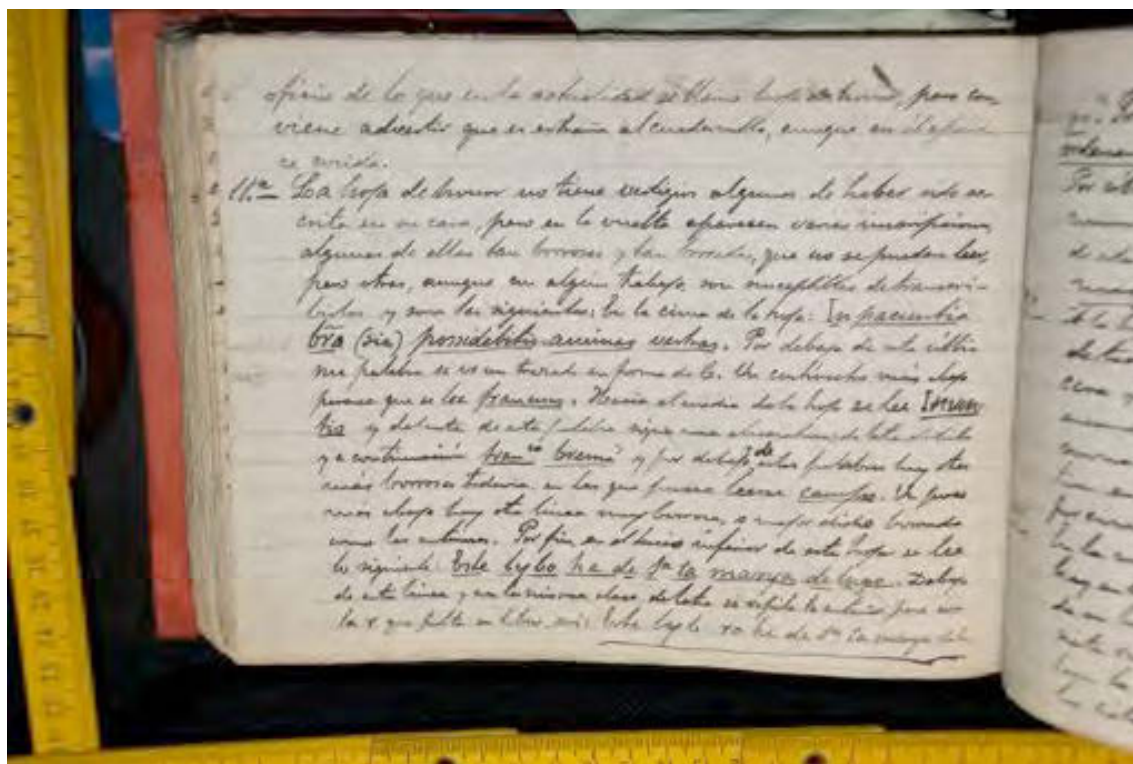 oficio de lo que en la actualidad se llama hoja de honor, pero con
viene advertir que es extraña al cuadernillo, aunque en él apare
ce cosida.
11.ª La hoja de honor no tiene vestigios algunos de haber sido es
crita en su cara, pero en la vuelta aparecen varias inscripciones
algunas de ellas tan borrosas y tan borradas, que no se pueden leer,
pero otras, aunque con algún trabajo, son susceptibles de transcri-
birlas y son las siguientes: En la cima de la hoja: In pacientia
bra (sic) possidebitis animas vestras. Por debajo de esta últi
ma palabra se ve un trazado en forma de C. Un centímetro más abajo
parece que se lee francisco. Hacia el medio de la hoja se lee Inven
tio y delante de esta palabra sigue una
y a continuación fran.co y por debajo de estas palabras hay otras
más borrosas todavía en las que parece leerse campos. Un poco
más abajo hay otra línea muy borrosa, o mejor dicho borrada
como las anteriores. Por fin, en el tercio inferior de esta hoja se lee
lo siguiente: Este lybo he de Sta marya de lugo. Debajo
de esta línea y en la misma clase de letra se repite lo anterior pero con
la r que falta en libro, así: Este lyb ro he de Sta marya de